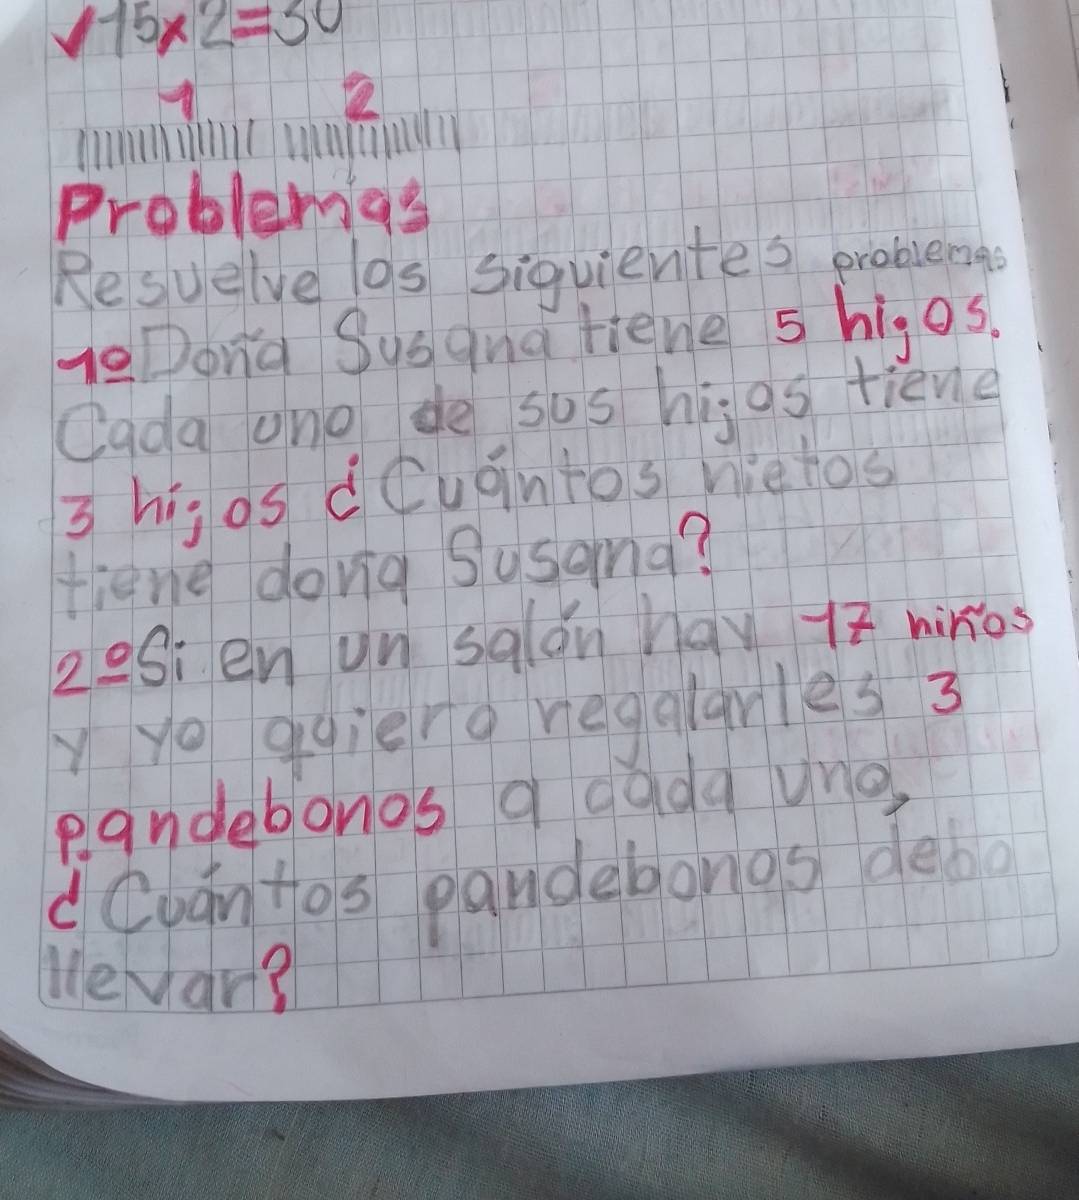 ✓15x2=30
1 2
Problemas
Resuelve los siguientes problemas
1º Doña Susana tiene 5 hijos.
Cada uno de sus hijos tiene
3 hijos ¿Cuántos nietos
tiene doña Susana?
2º Si en un salón hay 17 niños
y yo quiero regalarles 3
pandebonos a cada uno,
¿Cuántos pandebonos debo
llevar?